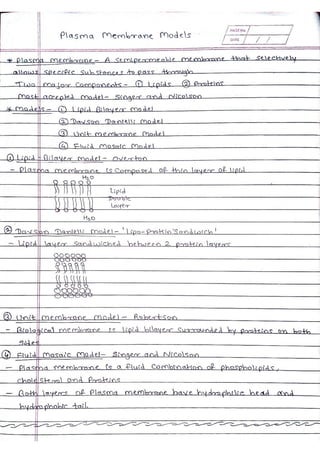 Plasma Membrane Models
DATE / /
* Plasma membrane - A semipermeable membrane that selectively
allows specific substances to pass through.
Two major components - ① Lipids ② Proteins
Most accepted model - Singer and Nicolson
* models - ① Lipid Bilayer model
② Davson Danielli model
③ Unit membrane Model
④ Fluid Mosaic Model
① Lipid Bilayer model - Overton
- Plasma membrane is composed of thin layer of Lipid
H₂O
Lipid
Double
Layer
H₂O
② Davson Danielli model - 'Lipo-protein Sandwich'
- Lipid layer sandwiched between 2 protein layers
③ Unit membrane model - Robertson
- Biological membrane is lipid bilayer surrounded by proteins on both
sides
④ Fluid Mosaic Model - Singer and Nicolson
- Plasma membrane is a fluid combination of phospholipids,
cholesterol and Proteins
- Both layers of Plasma membrane have hydrophilic head and
hydrophobic tail.